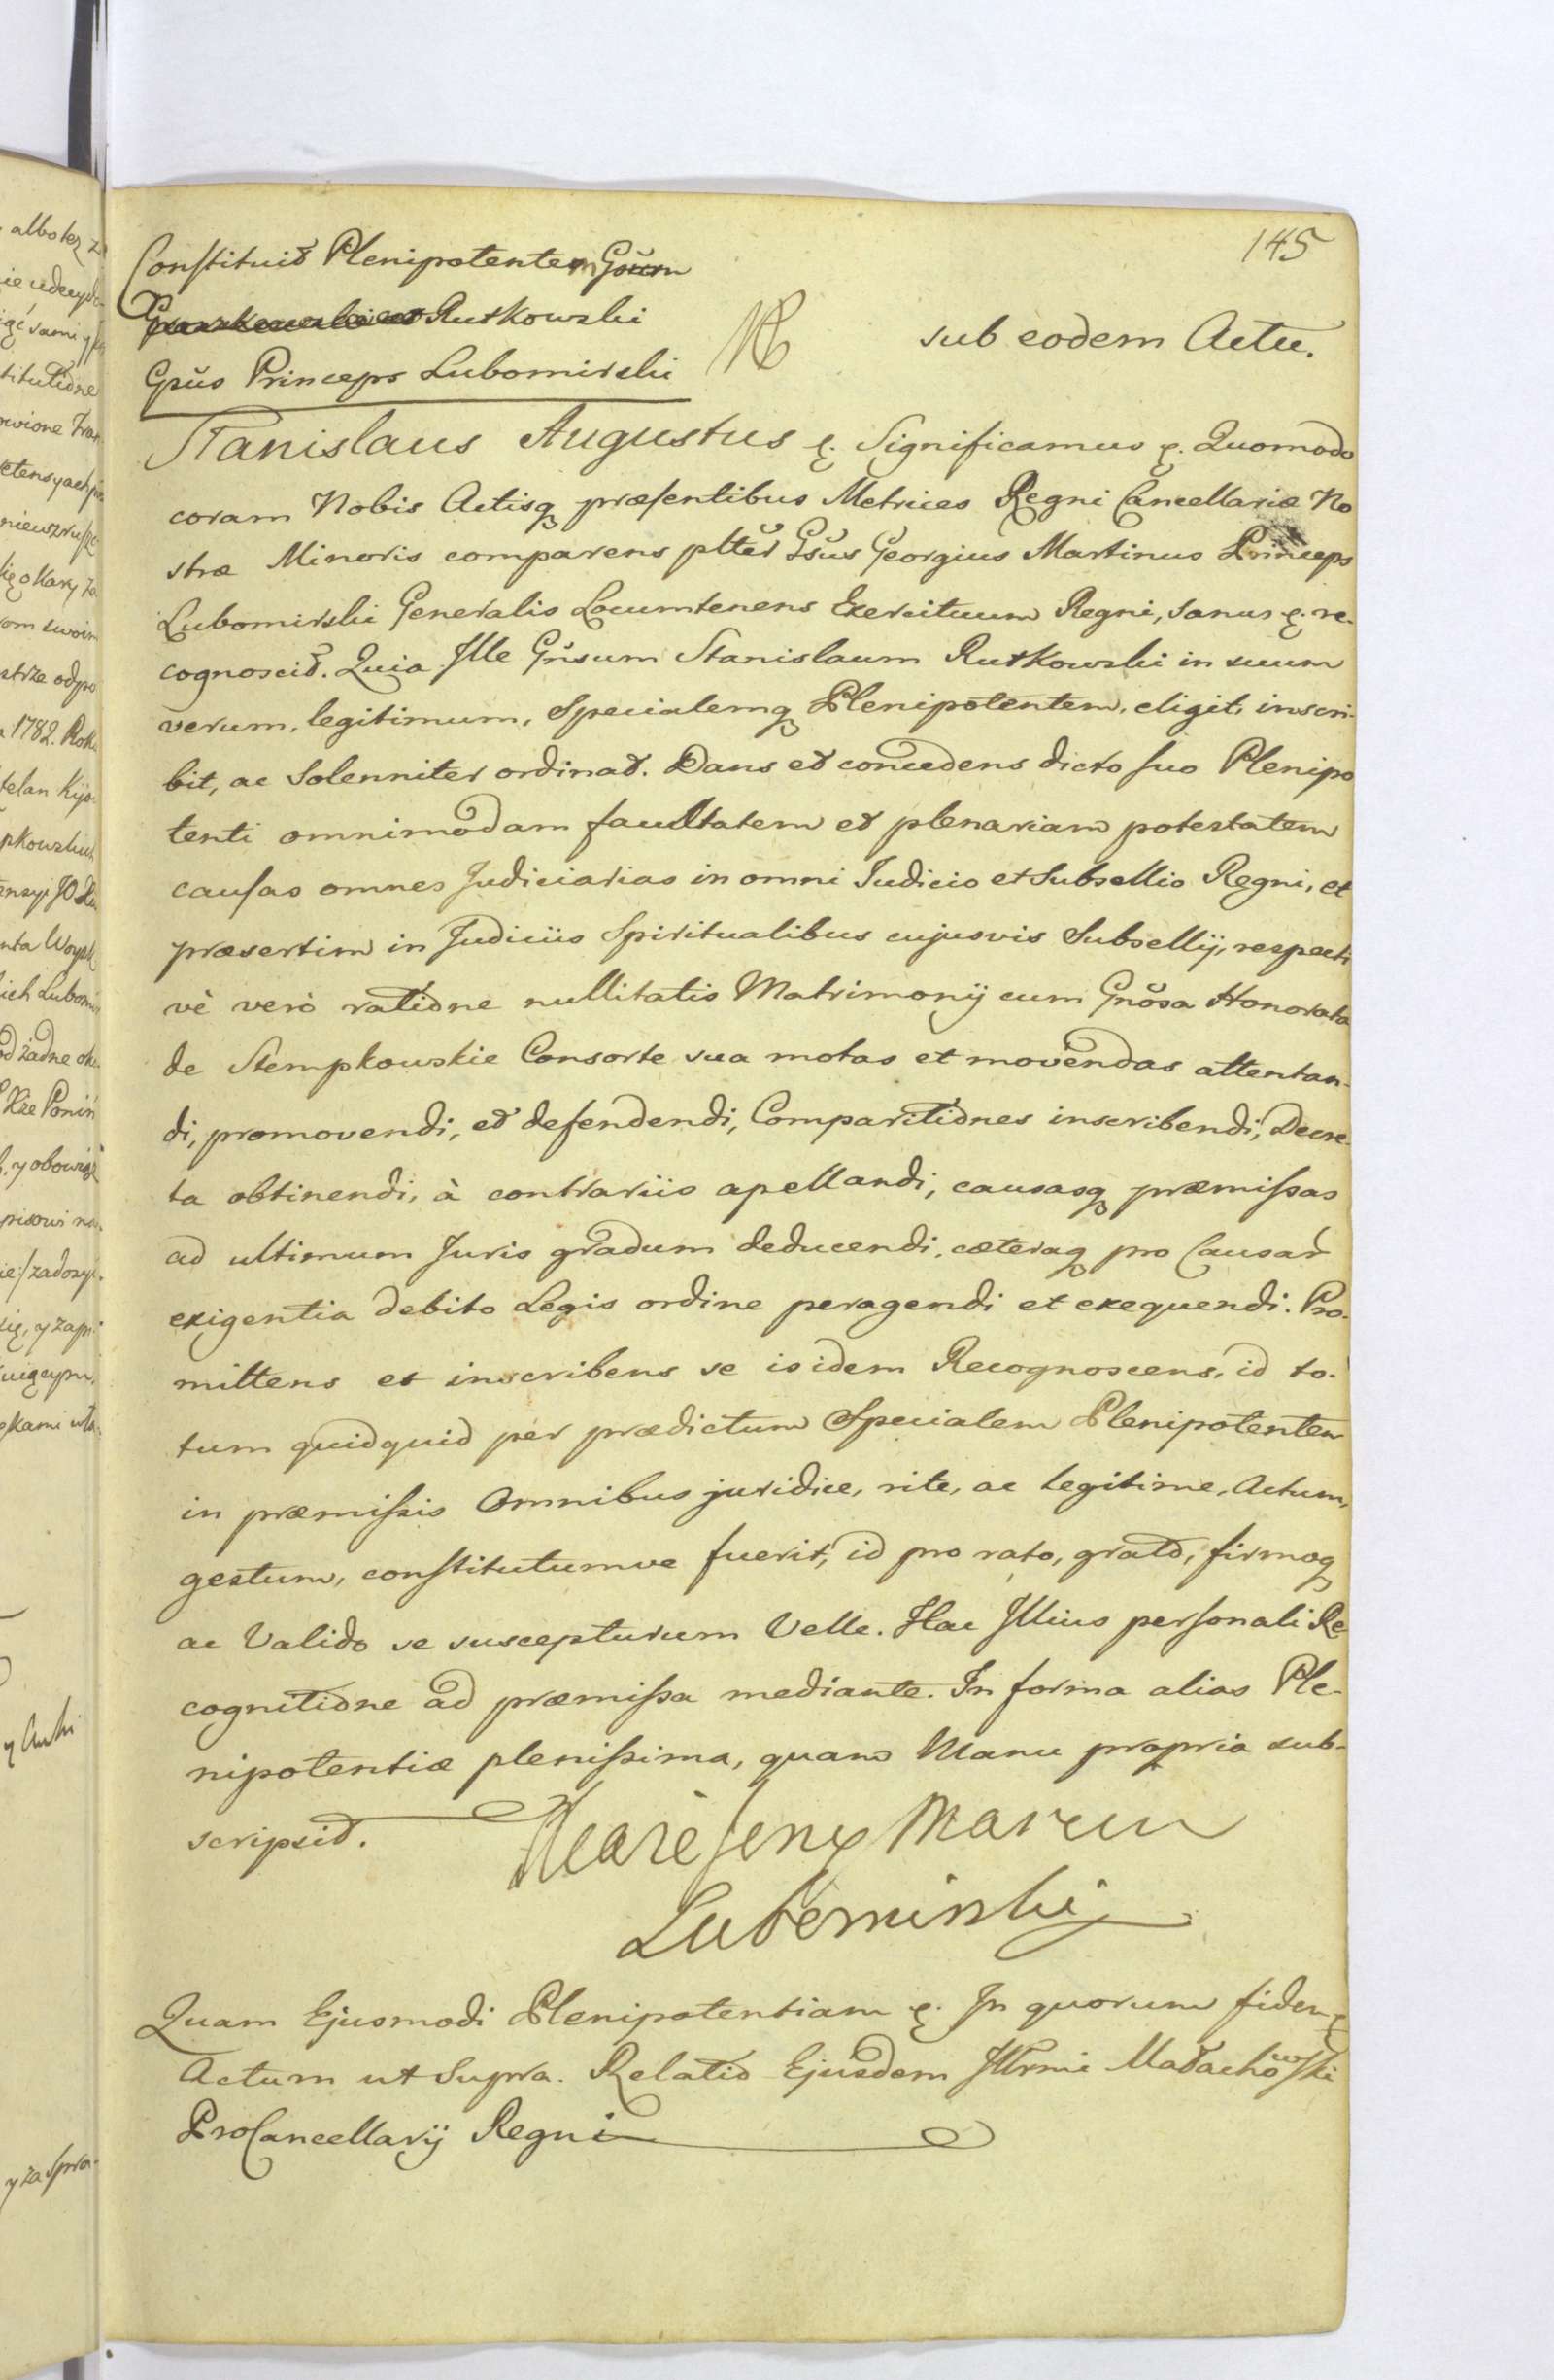 145
Constituit Plenipotentem Gsum
Rutkowski
Gsus Princeps Lubomirski
sub eodem Actu.
Stanislaus Augustus &. Significamus &. Quomodo
coram Nobis Actisq præsentibus Metrices Regni Cancellariæ No
stræ Minoris comparens plter Gsus Georgius Martinus Princeps
Lubomirski Generalis Locumtenens Exercituum Regni, sanus &. re-
cognoscit. Quia Ille Gnsum Stanislaum Rutkowski in suum
verum, legitimum, Specialemq Plenipotentem, eligit, inscri-
bit, ac Solenniter ordinat. Dans et concedens dicto suo Plenipo
tenti omnimodam facultatem et plenariam potestatem
causas omnes Judiciarias in omni Judicio et Subsellio Regni, et
præsertim in Judiciis Spiritualibus cujusvis Subsellij, respecti
vè verò ratione nullitatis Matrimonij cum Gnosa Honorata
de Stempkowskie Consorte sua motas et movendas attentan-
di, promovendi, et defendendi, Comparitiones inscribendi, Decre-
ta obtinendi, à contrariis apellandi, causasq præmissas
ad ultimum Juris gradum deducendi, cæteraq pro Causar
exigentia debito Legis ordine peragendi et exequendi. Pro-
mittens et inscribens se is idem Recognoscens, id to-
tum quidquid per prædictum Specialem Plenipotentem
in præmissis Omnibus juridice, rite, ac legitime, Actum,
gestum, constitutumve fuerit, id pro rato, grato, firmoq
ac Valido se suscepturum Velle. Hac Illius personali Re
cognitione ad præmissa mediante. In forma alias Ple-
nipotentiæ plenissima, quam Manu propria sub-
scripsit.
Xiąże Jerzy Marcin
Lubomirski
Quam Ejusmodi Plenipotentiam &. In quorum fidem &
Actum ut Supra. Relatio Ejusdem Illrmi Małachowski
ProCancellarij Regni